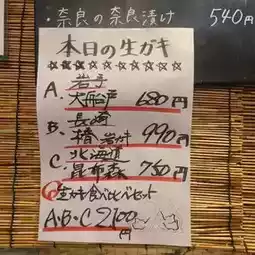 ・奈良の奈良漬け 540円
本日の生ガキ
☆☆☆☆☆☆☆☆☆☆
A. 岩手
大船渡 680円
B. 長崎
橘岩ガキ 990円
C. 北海道
昆布森 750円
生ガキ食べ比べセット
A・B・C 2100
円